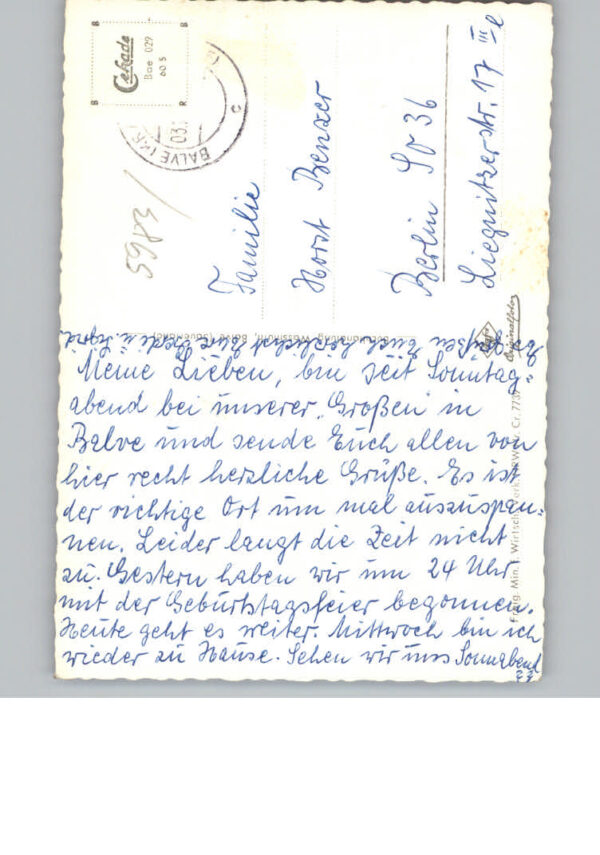 Meine Lieben, bin seit Sonntag=
abend bei unserer "Großen" in
Balve und sende Euch allen von
hier recht herzliche Grüße. Es ist
der richtige Ort um mal auszuspan=
nen. Leider langt die Zeit nicht
zu. Gestern haben wir um 24 Uhr
mit der Geburtstagsfeier begonnen.
Heute geht es weiter. Mittwoch bin ich
wieder zu Hause. Sehen wir uns Sonnabend
??
Es grüßen Euch herzlichst Eure
Cekade
Bae 029
60 S
B
B
B
R
BALVE
5983/
Familie
Horst Benzer
Berlin SO 36
Liegnitzerstr. 17 III e
Balve (Sauerland)
Originalfoto
Freig. Min. f. Wirtsch.